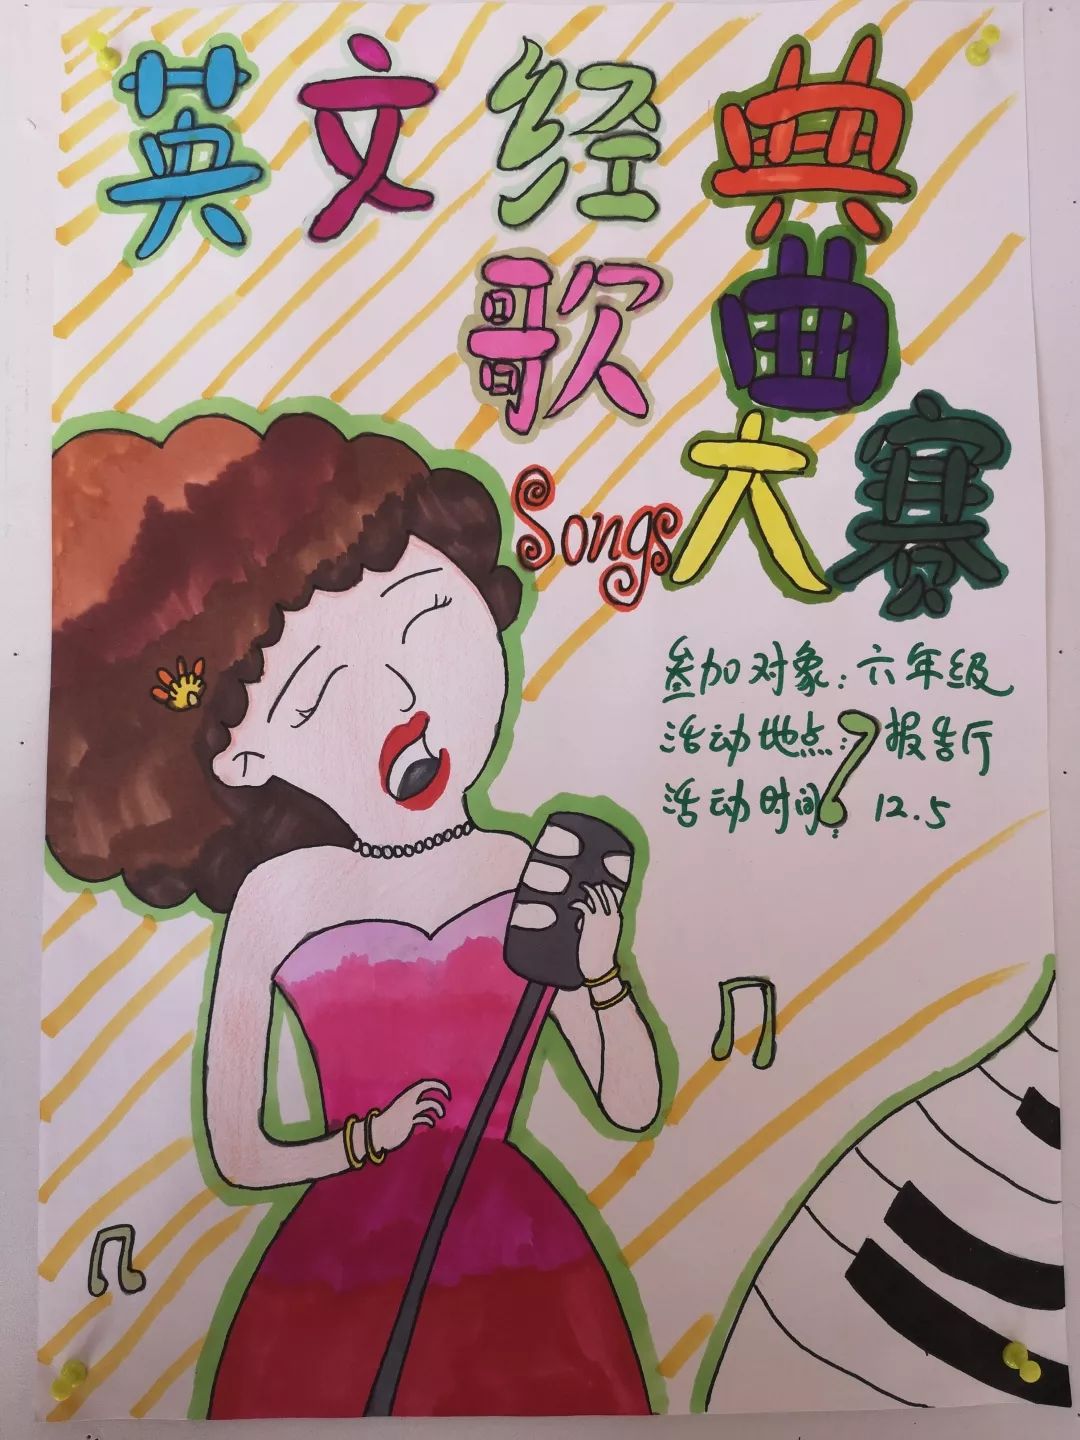 英文经典
歌曲
Songs大赛
参加对象:六年级
活动地点:报告厅
活动时间: 12.5